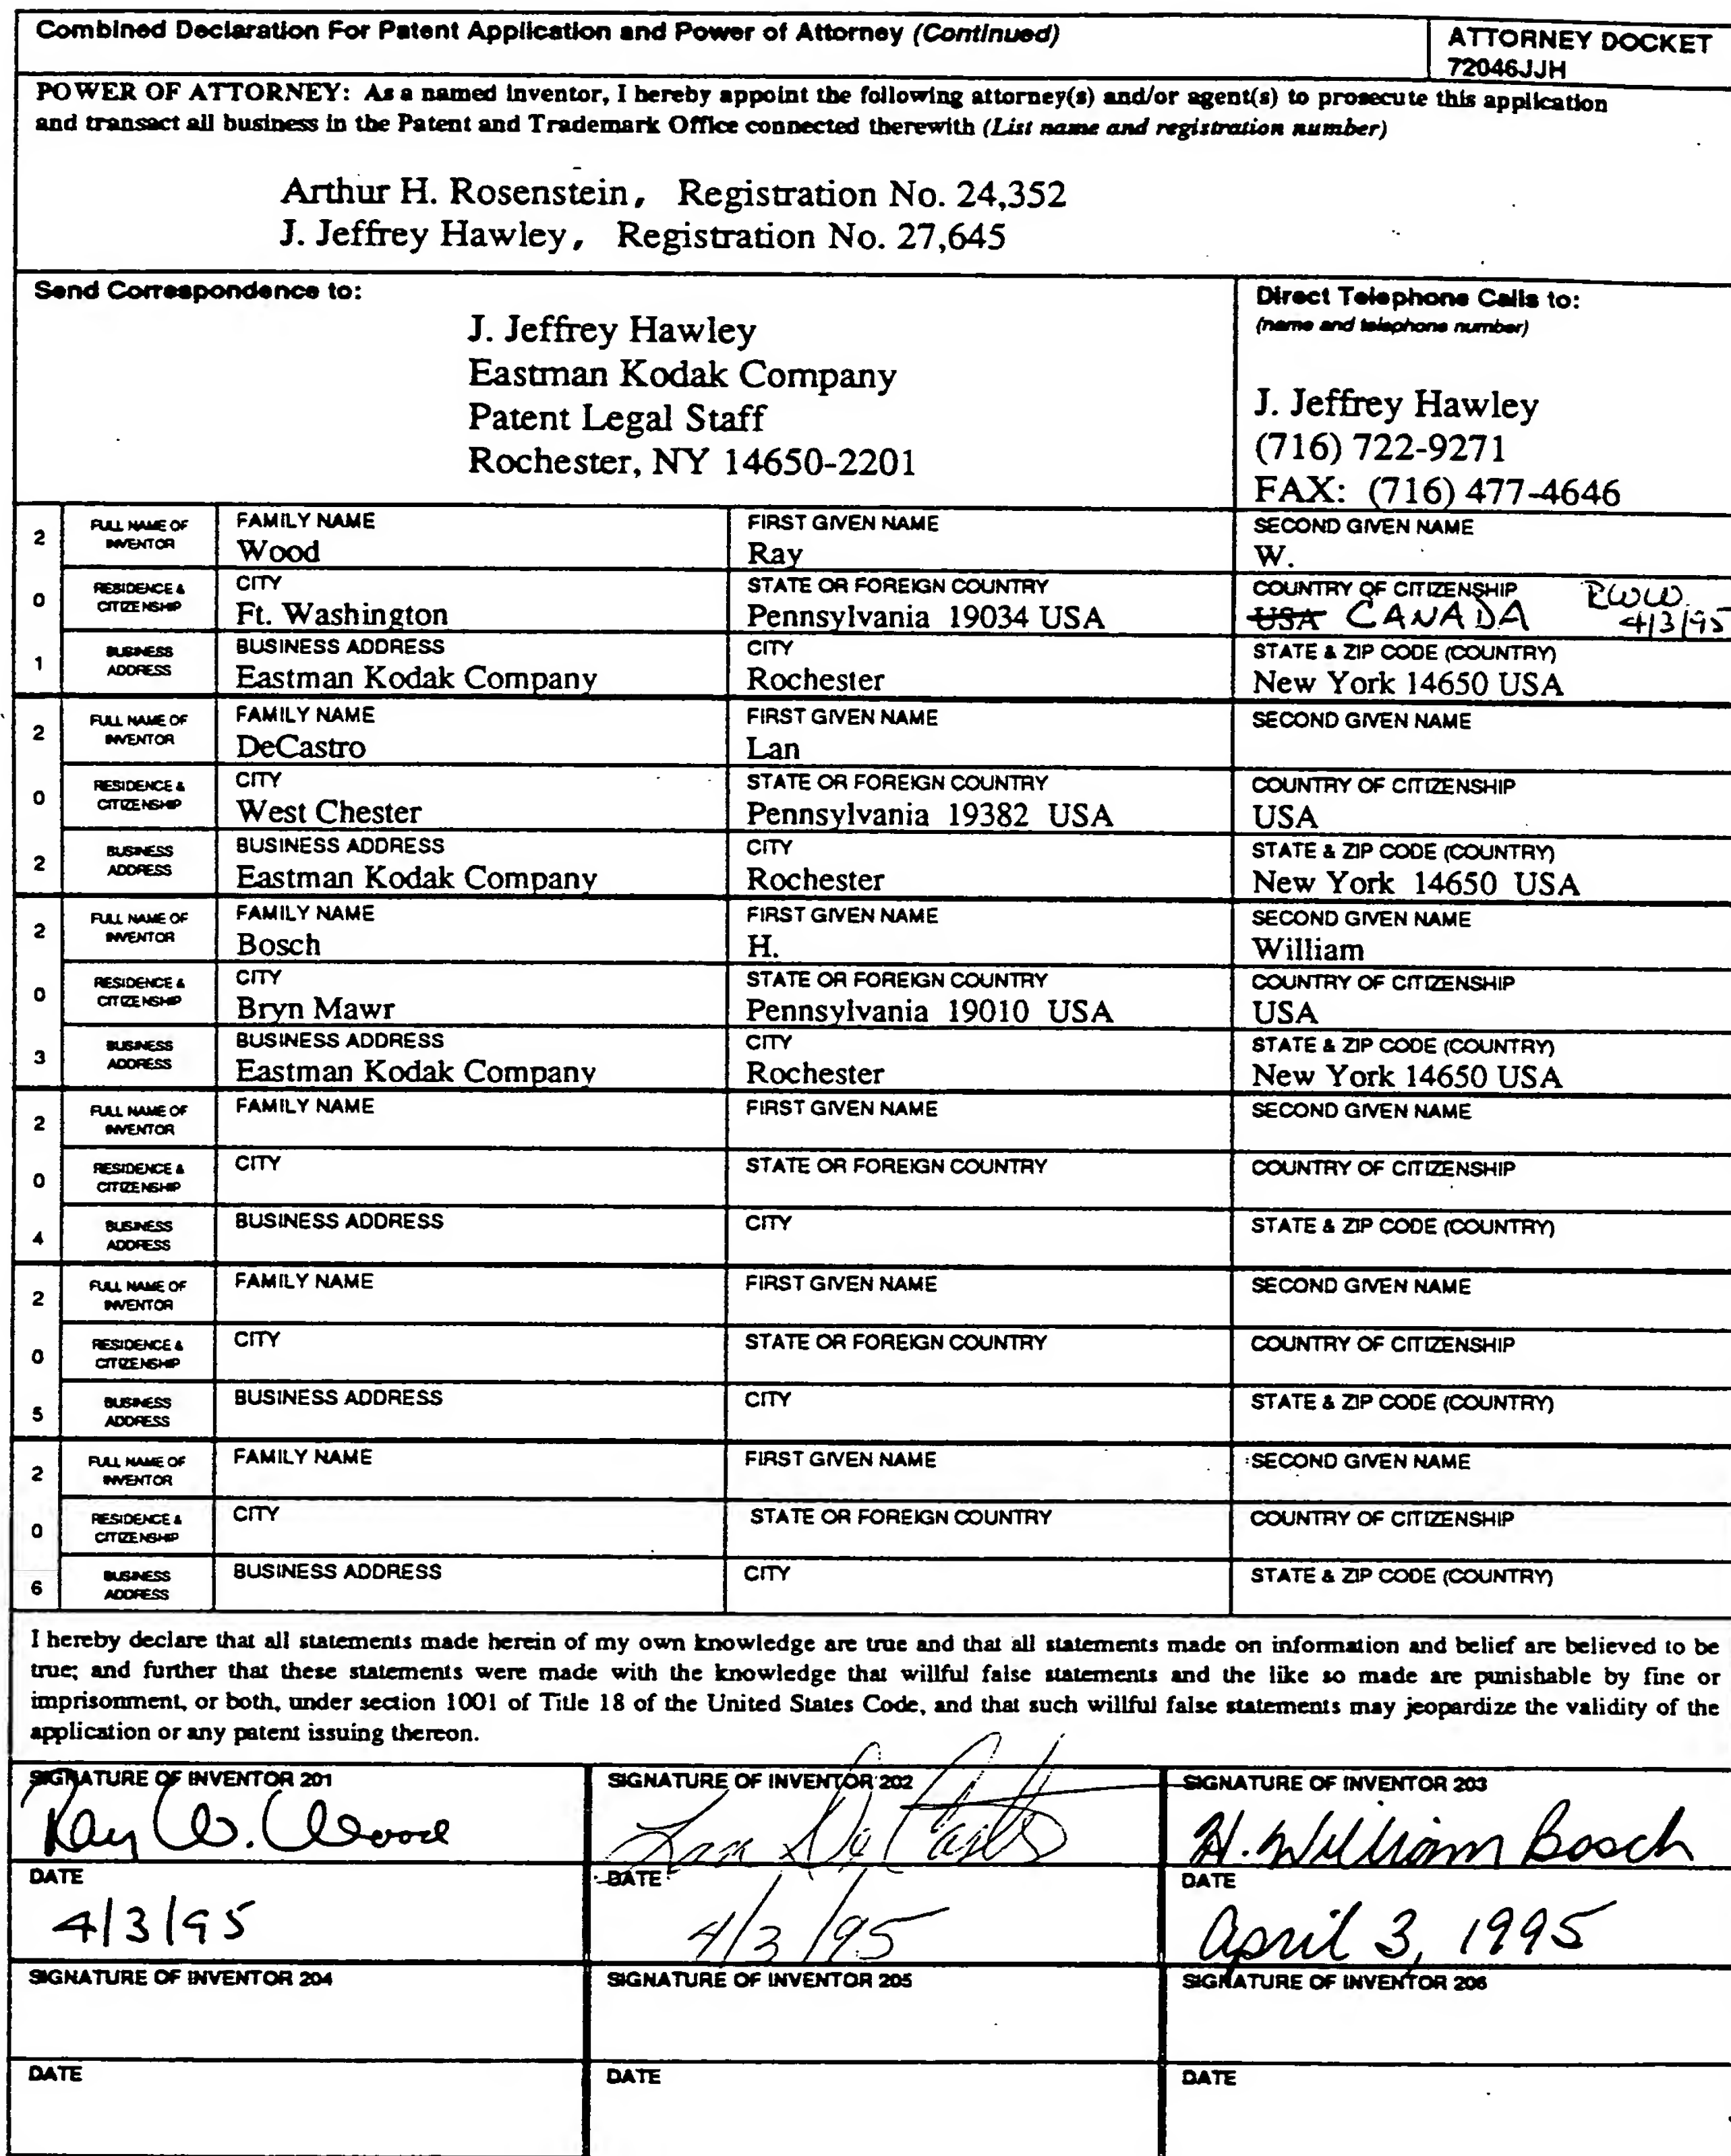 Combined Declaration For Patent Application and Power of Attorney (Continued)
ATTORNEY DOCKET
72046JJH
POWER OF ATTORNEY: As a named inventor, I hereby appoint the following attorney(s) and/or agent(s) to prosecute this application
and transact all business in the Patent and Trademark Office connected therewith (List name and registration number)
Arthur H. Rosenstein, Registration No. 24,352
J. Jeffrey Hawley, Registration No. 27,645
Send Correspondence to:
J. Jeffrey Hawley
Eastman Kodak Company
Patent Legal Staff
Rochester, NY 14650-2201
Direct Telephone Calls to:
(name and telephone number)
J. Jeffrey Hawley
(716) 722-9271
FAX: (716) 477-4646
2 FULL NAME OF INVENTOR FAMILY NAME FIRST GIVEN NAME SECOND GIVEN NAME
Wood Ray W.
0 RESIDENCE & CITIZENSHIP CITY STATE OR FOREIGN COUNTRY COUNTRY OF CITIZENSHIP RWW
Ft. Washington Pennsylvania 19034 USA USA CANADA 4/3/95
1 BUSINESS ADDRESS BUSINESS ADDRESS CITY STATE & ZIP CODE (COUNTRY)
Eastman Kodak Company Rochester New York 14650 USA
2 FULL NAME OF INVENTOR FAMILY NAME FIRST GIVEN NAME SECOND GIVEN NAME
DeCastro Lan
0 RESIDENCE & CITIZENSHIP CITY STATE OR FOREIGN COUNTRY COUNTRY OF CITIZENSHIP
West Chester Pennsylvania 19382 USA USA
2 BUSINESS ADDRESS BUSINESS ADDRESS CITY STATE & ZIP CODE (COUNTRY)
Eastman Kodak Company Rochester New York 14650 USA
2 FULL NAME OF INVENTOR FAMILY NAME FIRST GIVEN NAME SECOND GIVEN NAME
Bosch H. William
0 RESIDENCE & CITIZENSHIP CITY STATE OR FOREIGN COUNTRY COUNTRY OF CITIZENSHIP
Bryn Mawr Pennsylvania 19010 USA USA
3 BUSINESS ADDRESS BUSINESS ADDRESS CITY STATE & ZIP CODE (COUNTRY)
Eastman Kodak Company Rochester New York 14650 USA
2 FULL NAME OF INVENTOR FAMILY NAME FIRST GIVEN NAME SECOND GIVEN NAME
0 RESIDENCE & CITIZENSHIP CITY STATE OR FOREIGN COUNTRY COUNTRY OF CITIZENSHIP
4 BUSINESS ADDRESS BUSINESS ADDRESS CITY STATE & ZIP CODE (COUNTRY)
2 FULL NAME OF INVENTOR FAMILY NAME FIRST GIVEN NAME SECOND GIVEN NAME
0 RESIDENCE & CITIZENSHIP CITY STATE OR FOREIGN COUNTRY COUNTRY OF CITIZENSHIP
5 BUSINESS ADDRESS BUSINESS ADDRESS CITY STATE & ZIP CODE (COUNTRY)
2 FULL NAME OF INVENTOR FAMILY NAME FIRST GIVEN NAME SECOND GIVEN NAME
0 RESIDENCE & CITIZENSHIP CITY STATE OR FOREIGN COUNTRY COUNTRY OF CITIZENSHIP
6 BUSINESS ADDRESS BUSINESS ADDRESS CITY STATE & ZIP CODE (COUNTRY)
I hereby declare that all statements made herein of my own knowledge are true and that all statements made on information and belief are believed to be
true; and further that these statements were made with the knowledge that willful false statements and the like so made are punishable by fine or
imprisonment, or both, under section 1001 of Title 18 of the United States Code, and that such willful false statements may jeopardize the validity of the
application or any patent issuing thereon.
SIGNATURE OF INVENTOR 201 SIGNATURE OF INVENTOR 202 SIGNATURE OF INVENTOR 203
Ray W. Wood Lan De Castro H. William Bosch
DATE DATE DATE
4/3/95 4/3/95 April 3, 1995
SIGNATURE OF INVENTOR 204 SIGNATURE OF INVENTOR 205 SIGNATURE OF INVENTOR 206
DATE DATE DATE